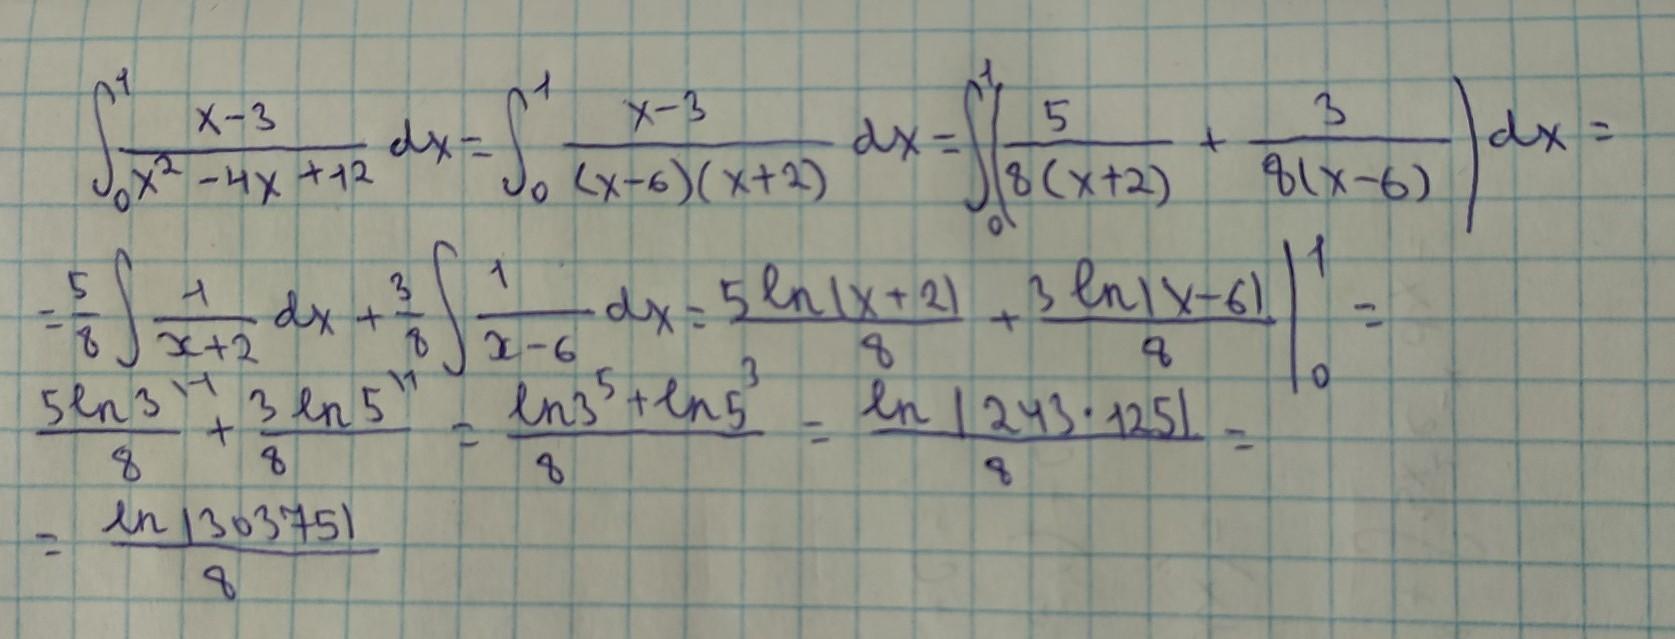 ∫₀¹ (x-3)/(x² -4x +12) dx = ∫₀¹ (x-3)/((x-6)(x+2)) dx = ∫₀¹ (5/(8(x+2)) + 3/(8(x-6))) dx =
= 5/8 ∫ 1/(x+2) dx + 3/8 ∫ 1/(x-6) dx = 5 ln|x+2|/8 + 3 ln|x-6|/8 |₀¹ =
5ln3/8 + 3 ln5/8 = (ln3⁵ + ln5³)/8 = ln|243·125|/8 =
= ln|30375|/8